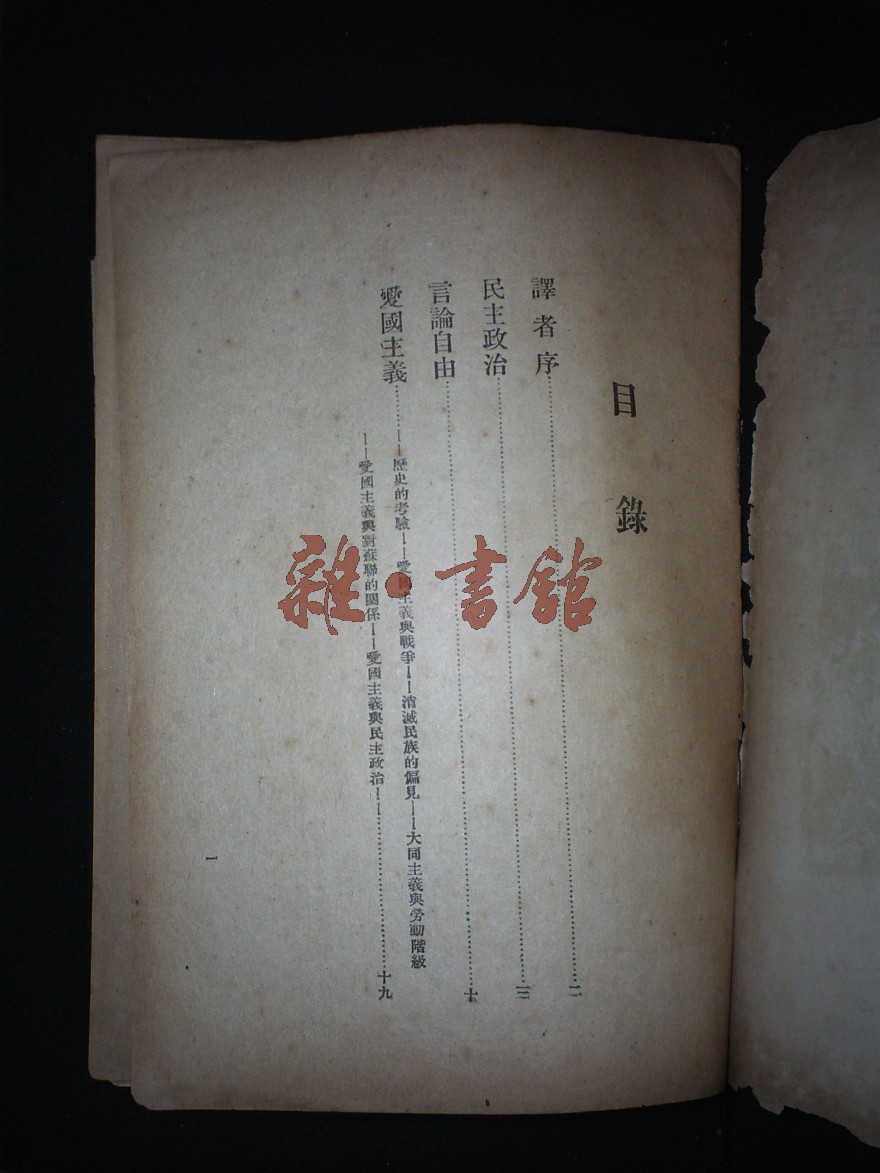 目錄
譯者序……二
民主政治……三
言論自由……十
愛國主義……——歷史的考驗——愛國主義與戰爭——消滅民族的偏見——大同主義與勞動階級
——愛國主義與對蘇聯的關係——愛國主義與民主政治——……十九
一
雜·書館